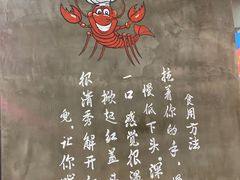 食用方法
拉着你的手,
慢低下头,深
一口 感觉很深
掀起红盖头
很清秀 解开
兜,让你